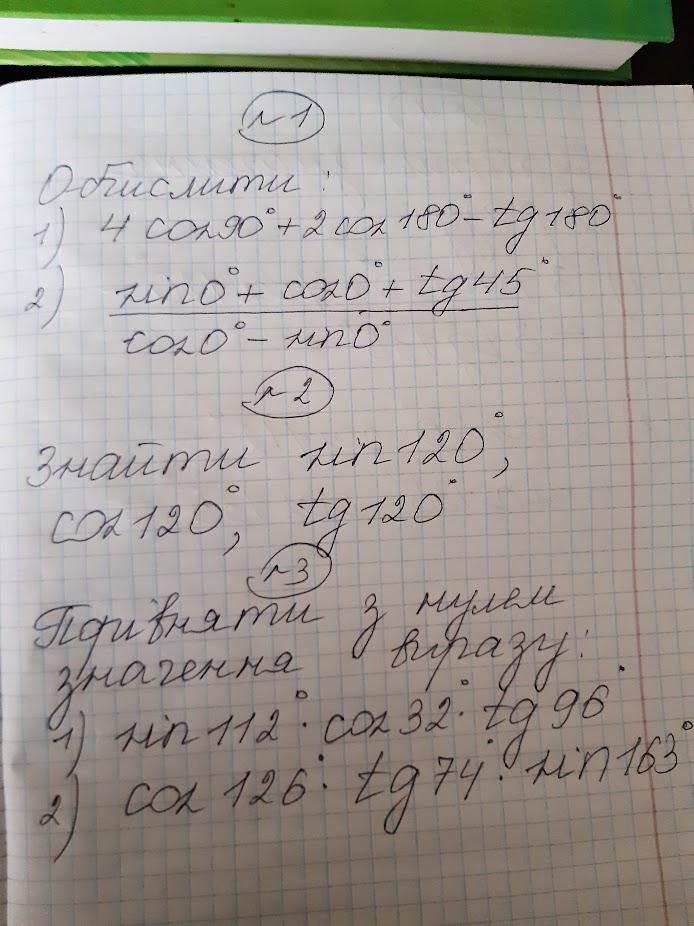 №1
Обчислити:
1) 4 cos90° + 2 cos180° - tg180°
2) sin0° + cos0° + tg45°
cos0° - sin0°
№2
Знайти sin120°,
cos120°, tg120°
№3
Порівняти з нулем
значення виразу:
1) sin112° · cos32° · tg96°
2) cos126° · tg74° · sin163°